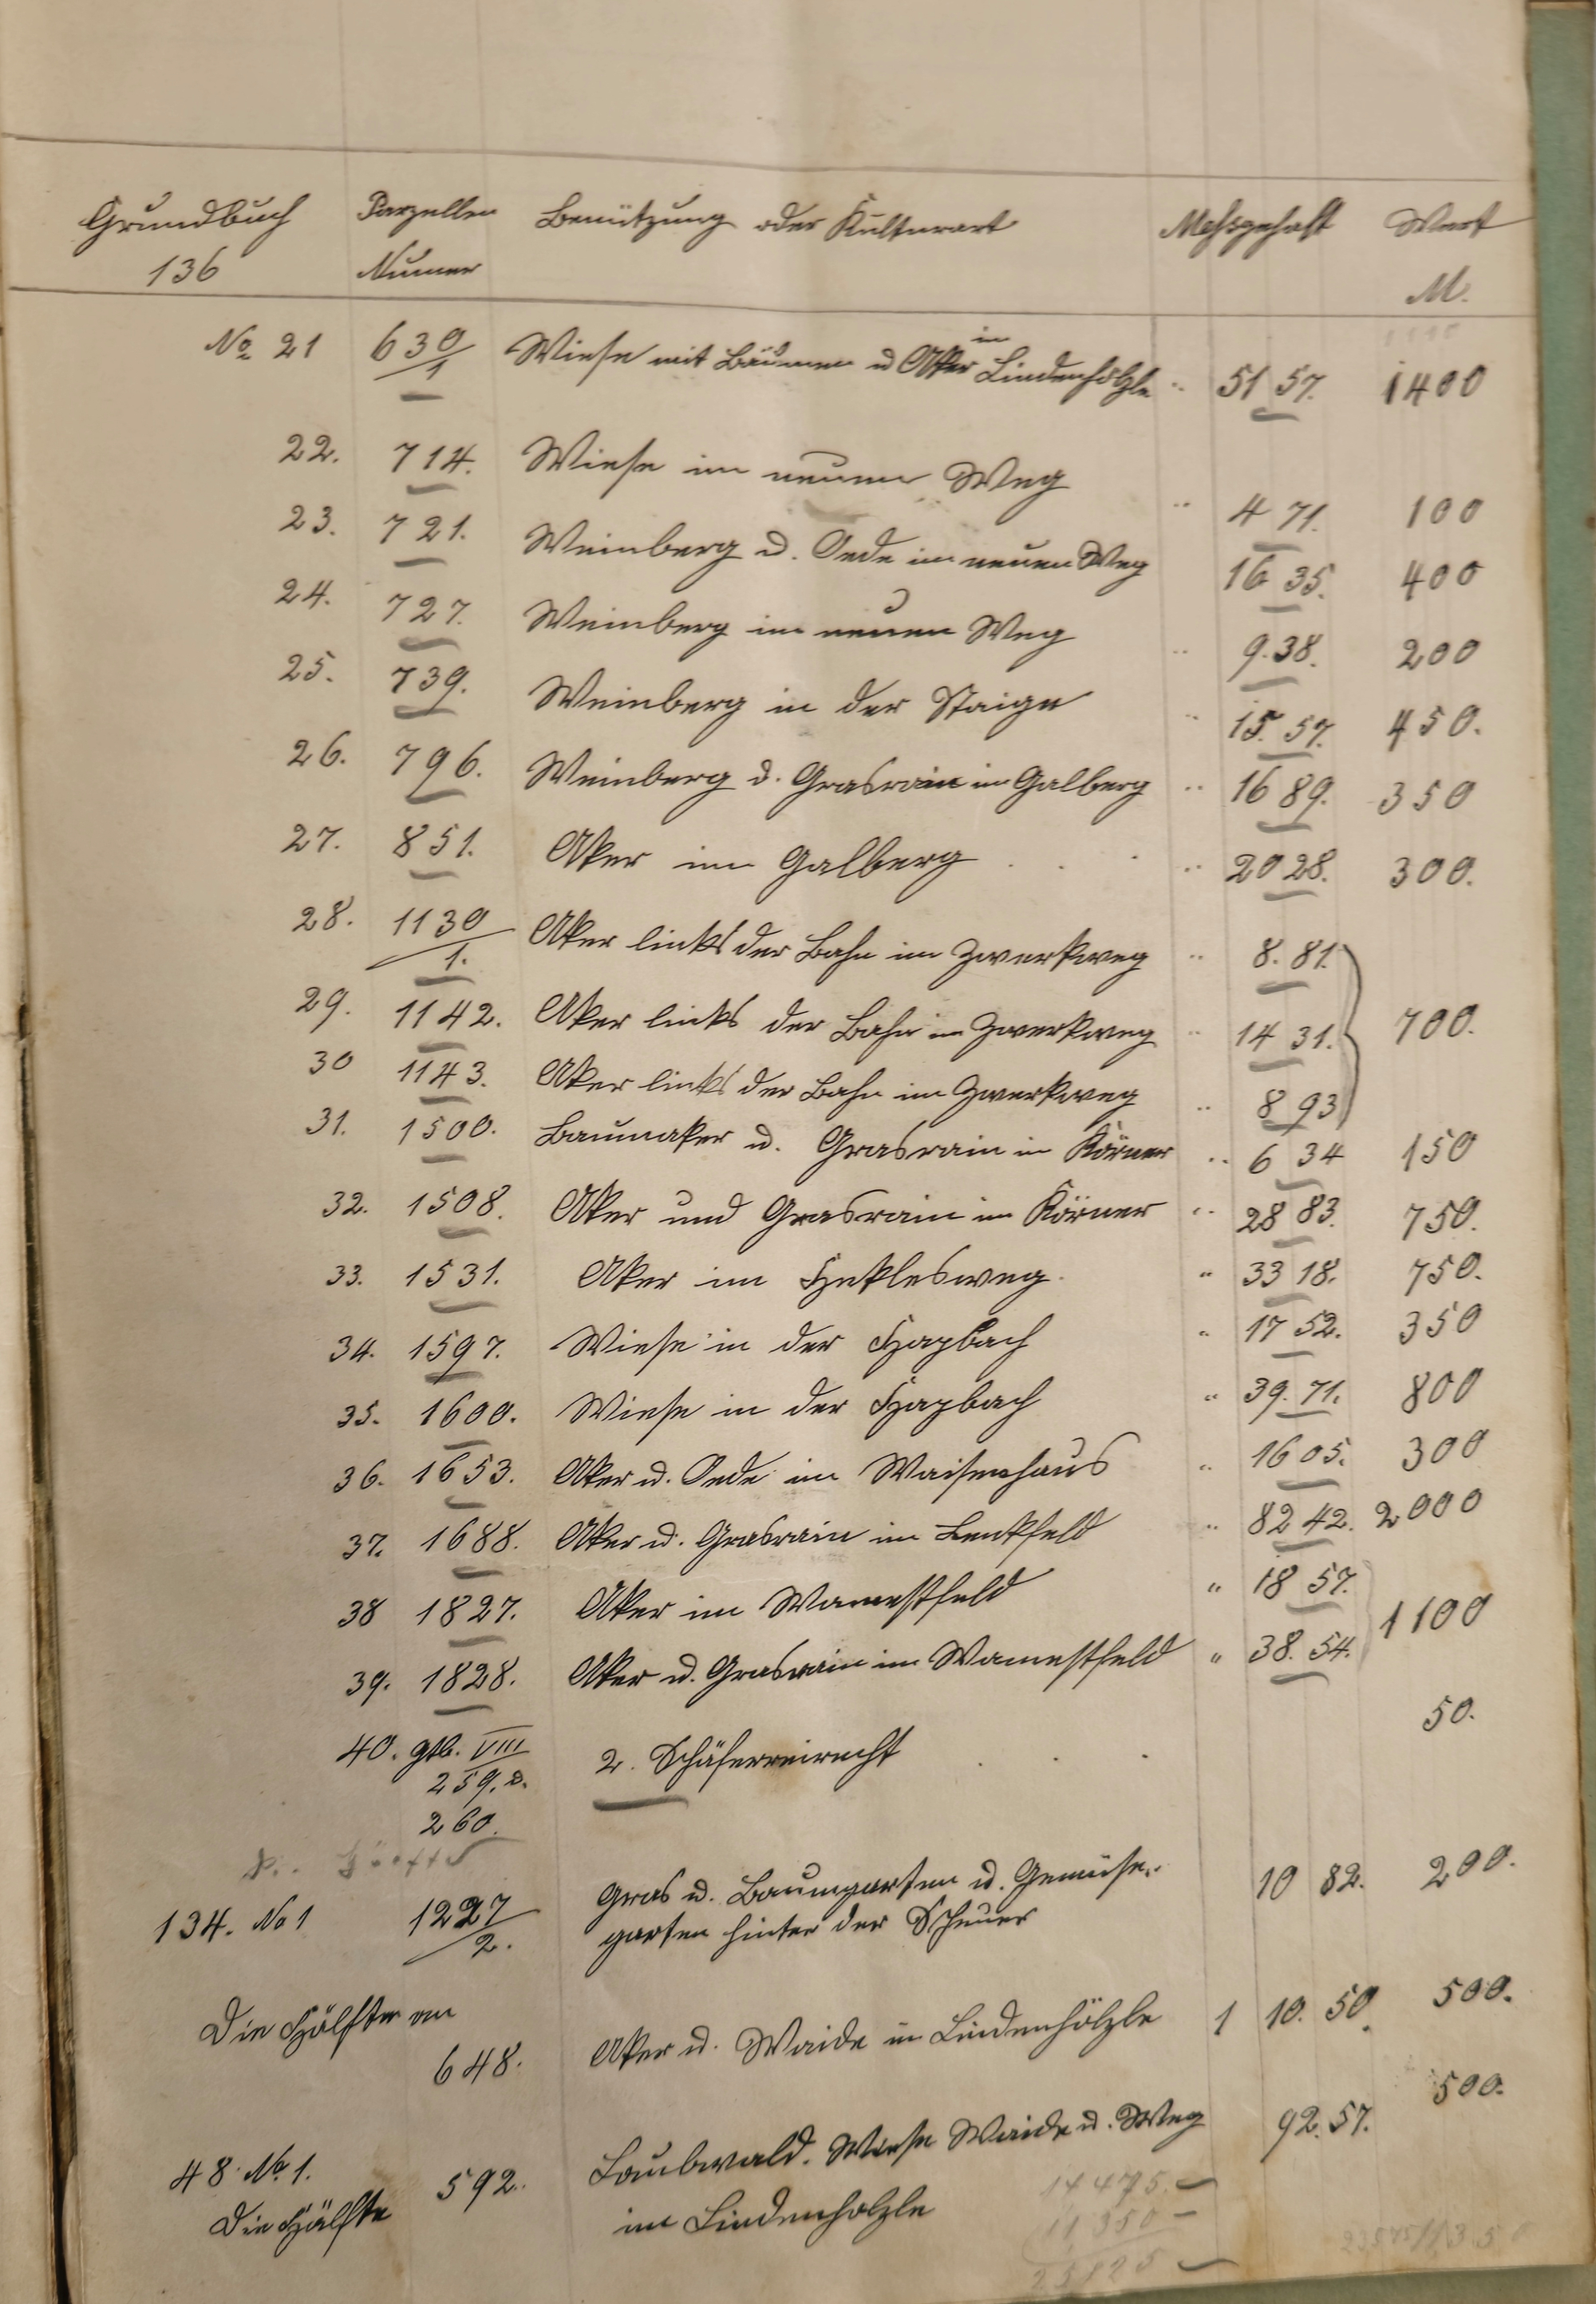 Grundbuch Parzellen Benützung oder Kulturart Meßgehalt Wert
136 Numer M.
No 21 630/1 Wiese mit Bäumen u Aker in Lindenhölzle " 51 57. 1400
22. 714. Wiese im neuen Weg " 4 71. 100
23. 721. Weinberg u. Oede im neuen Weg 16 35. 400
24. 727. Weinberg im neuen Weg " 9.38. 200
25. 739. Weinberg in der Staige " 15. 57. 450.
26. 796. Weinberg u. Grasrain im Galberg " 16 89. 350
27. 851. Aker im Galberg . . " 20 28. 300.
28. 1130/1. Aker links der Bahn im Zwerkweg " 8. 81.
29. 1142. Aker links der Bahn im Zwerkweg " 14 31. 700.
30 1143. Aker links der Bahn im Zwerkweg " 8 93
31. 1500. Baumaker u. Grasrain in Körner " 6 34 150
32. 1508. Aker und Grasrain im Körner " 28 83. 750.
33. 1531. Aker im Heklesweg " 33 18. 750.
34. 1597. Wiese in der Hapbach " 17 52. 350
35. 1600. Wiese in der Hapbach " 39. 71. 800
36. 1653. Aker u. Oede im Waisenhaus " 16 05. 300
37. 1688. Aker u. Grasrain im Lenkfeld " 82 42. 2000
38 1827. Aker im Wamestfeld " 18 57. 1100
39. 1828. Aker u. Grasrain im Wamestfeld " 38. 54.
40. gtb. VIII 2. Schäfereirecht . . 50.
259. u.
260.
134. No 1 1227/2. Gras u. Baumgarten u. Gemüse- 10 82. 200.
garten hinter der Scheuer
Die Hälfte an
648. Aker u. Waide in Lindenhölzle 1 10. 50. 500.
48 No. 1. 592. Laubwald. Wiese Waide u. Weg 92. 57. 500.
Die Hälfte im Lindenholzle
14475.—
11350—